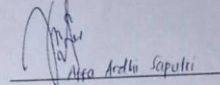 Affa Ardhi Saputri